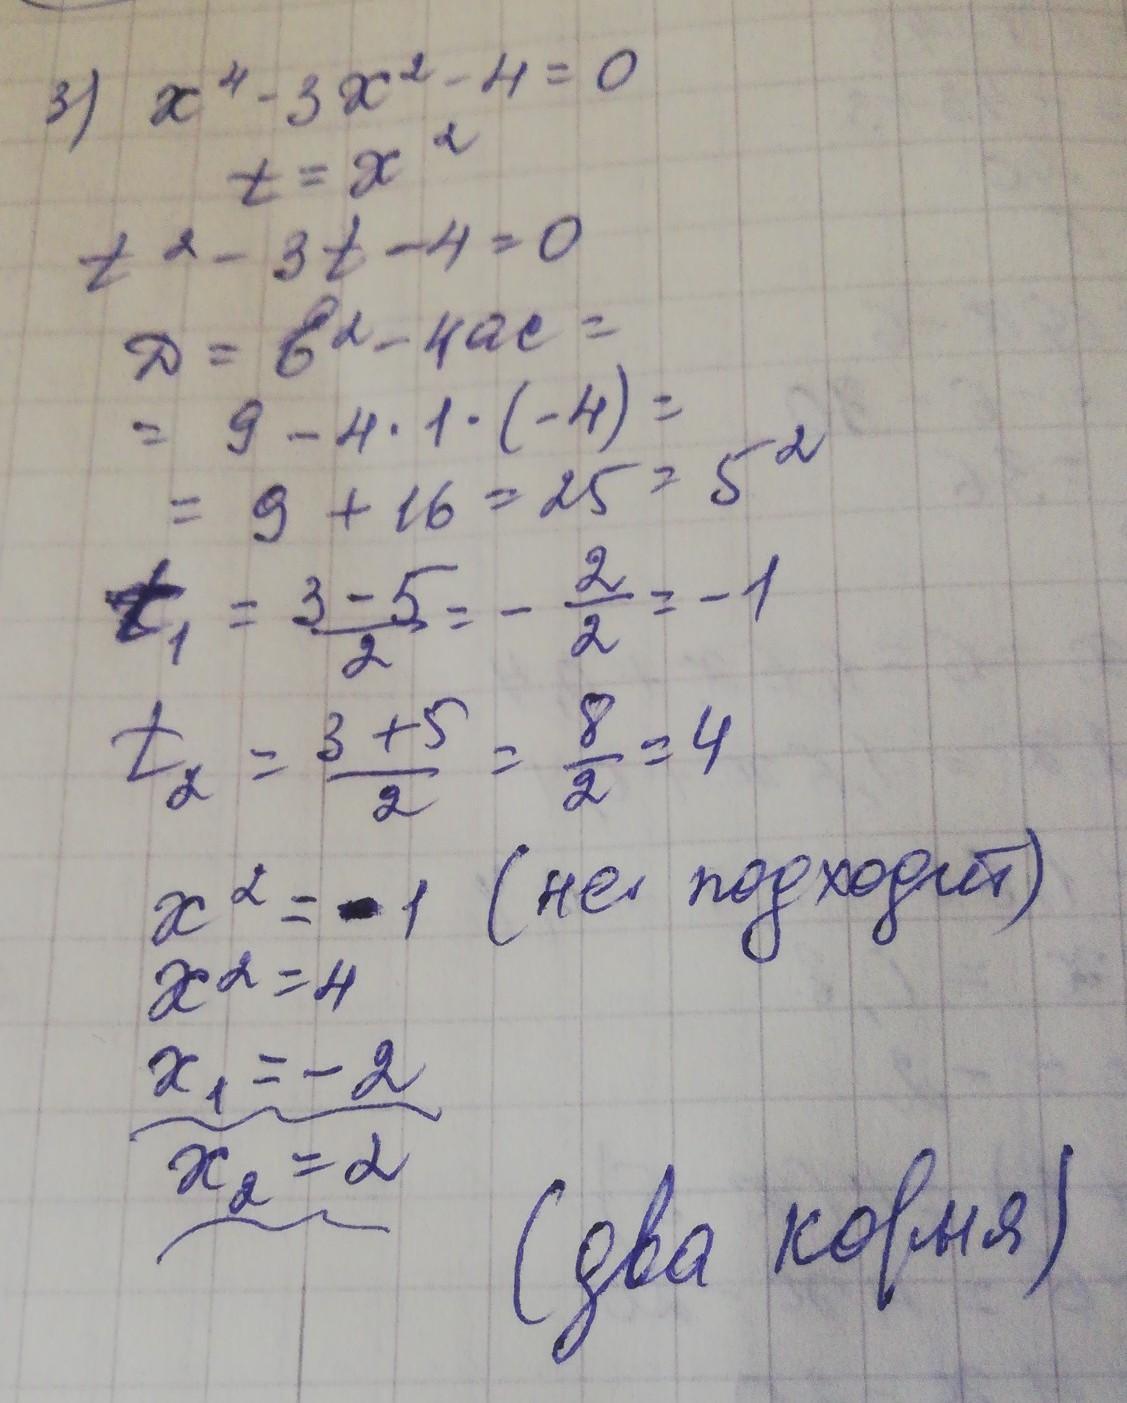 3) x⁴ - 3x² - 4 = 0
t = x²
t² - 3t - 4 = 0
D = b² - 4ac =
= 9 - 4 · 1 · (-4) =
= 9 + 16 = 25 = 5²
t₁ = (3 - 5)/2 = - 2/2 = -1
t₂ = (3 + 5)/2 = 8/2 = 4
x² = -1 (не подходит)
x² = 4
x₁ = -2
x₂ = 2
(два корня)